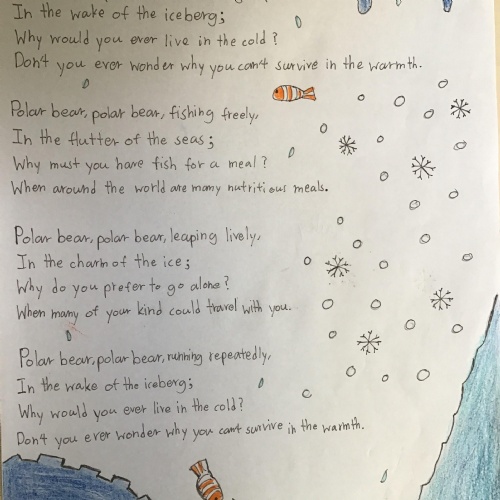 In the wake of the iceberg;
Why would you ever live in the cold?
Don't you ever wonder why you can't survive in the warmth.
Polar bear, polar bear, fishing freely,
In the flutter of the seas;
Why must you have fish for a meal?
When around the world are many nutritious meals.
Polar bear, polar bear, leaping lively,
In the charm of the ice;
Why do you prefer to go alone?
When many of your kind could travel with you.
Polar bear, polar bear, running repeatedly,
In the wake of the iceberg;
Why would you ever live in the cold?
Don't you ever wonder why you can't survive in the warmth.